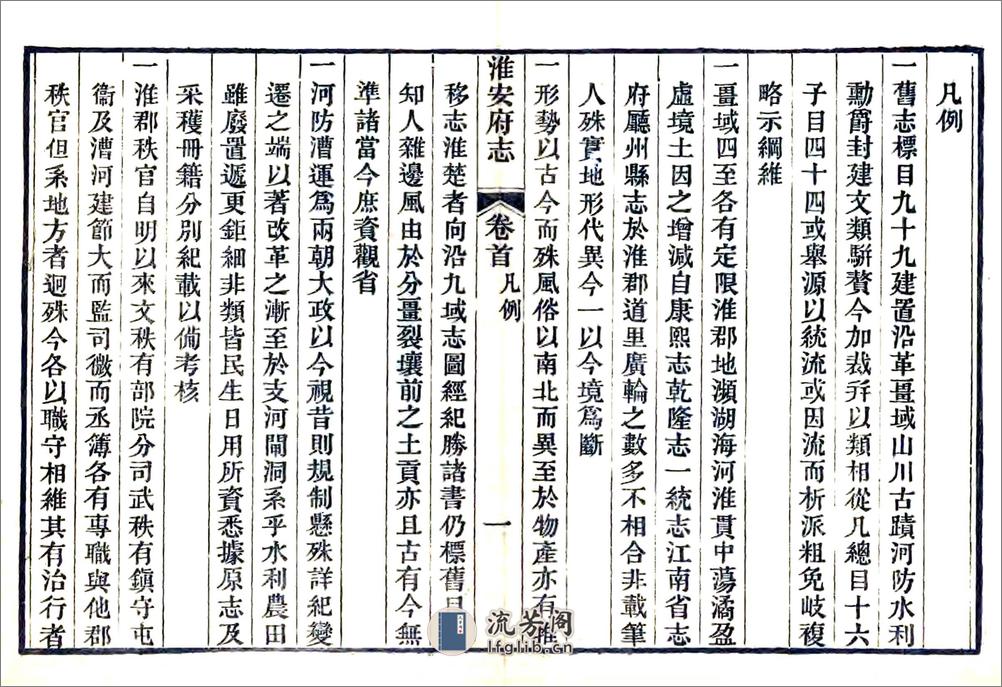 凡例
一舊志標目九十九建置沿革畺域山川古蹟河防水利
勳爵封建文類駢贅今加裁并以類相從凡總目十六
子目四十四或舉源以統流或因流而析派粗免岐複
略示綱維
一畺域四至各有定限淮郡地瀕湖海河淮貫中蕩潏盈
虛境土因之增減自康熙志乾隆志一統志江南省志
府廳州縣志於淮郡道里廣輪之數多不相合非載筆
人殊實地形代異今一以今境爲斷
一形勢以古今而殊風俗以南北而異至於物產亦有
淮安府志 卷首 凡例 一
移志淮楚者向沿九域志圖經紀勝諸書仍標舊
知人雜邊風由於分畺裂壤前之土貢亦且古有今無
準諸當今庶資觀省
一河防漕運爲兩朝大政以今視昔則規制懸殊詳紀變
遷之端以著改革之漸至於支河閘洞系乎水利農田
雖廢置遞更鉅細非類皆民生日用所資悉據原志及
采穫冊籍分別紀載以備考核
一淮郡秩官自明以來文秩有部院分司武秩有鎭守屯
衞及漕河建節大而監司微而丞簿各有專職與他郡
秩官但系地方者迥殊今各以職守相維其有治行者
流芳阁
lfglib.cn